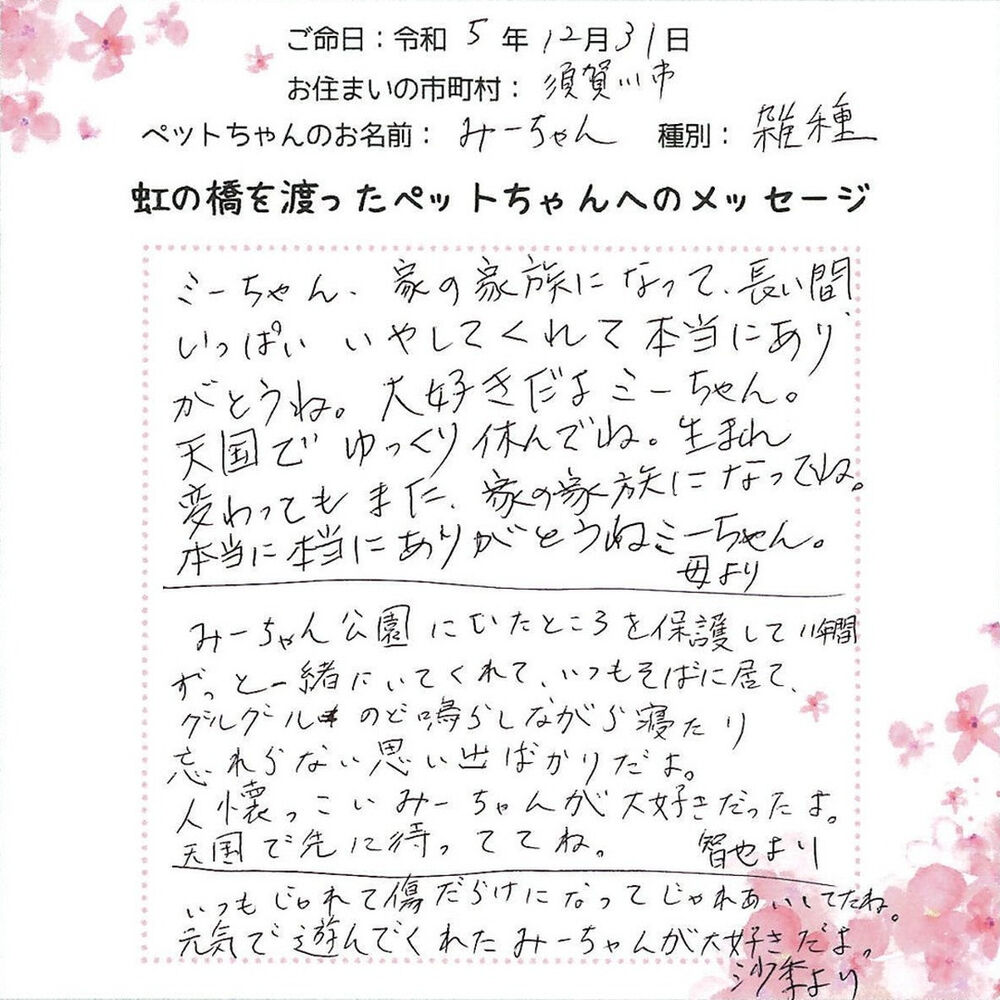 ご命日：令和 5 年 12月31日
お住まいの市町村： 須賀川市
ペットちゃんのお名前： みーちゃん 種別： 雑種
虹の橋を渡ったペットちゃんへのメッセージ
ミーちゃん、家の家族になって、長い間、
いっぱい いやしてくれて本当にあり
がとうね。大好きだよミーちゃん。
天国で ゆっくり休んでね。生まれ
変わってもまた、家の家族になってね。
本当に本当にありがとうねミーちゃん。
母より
みーちゃん公園にいたところを保護して11年間
ずっと一緒にいてくれて、いつもそばに居て、
グルグル のど鳴らしながら寝たり
忘れらない思い出ばかりだよ。
人懐っこいみーちゃんが大好きだったよ。
天国で先に待っててね。 智也より
いつもじゃれて傷だらけになってじゃれあいしてたね。
元気で遊んでくれたみーちゃんが大好きだよ。
沙季より